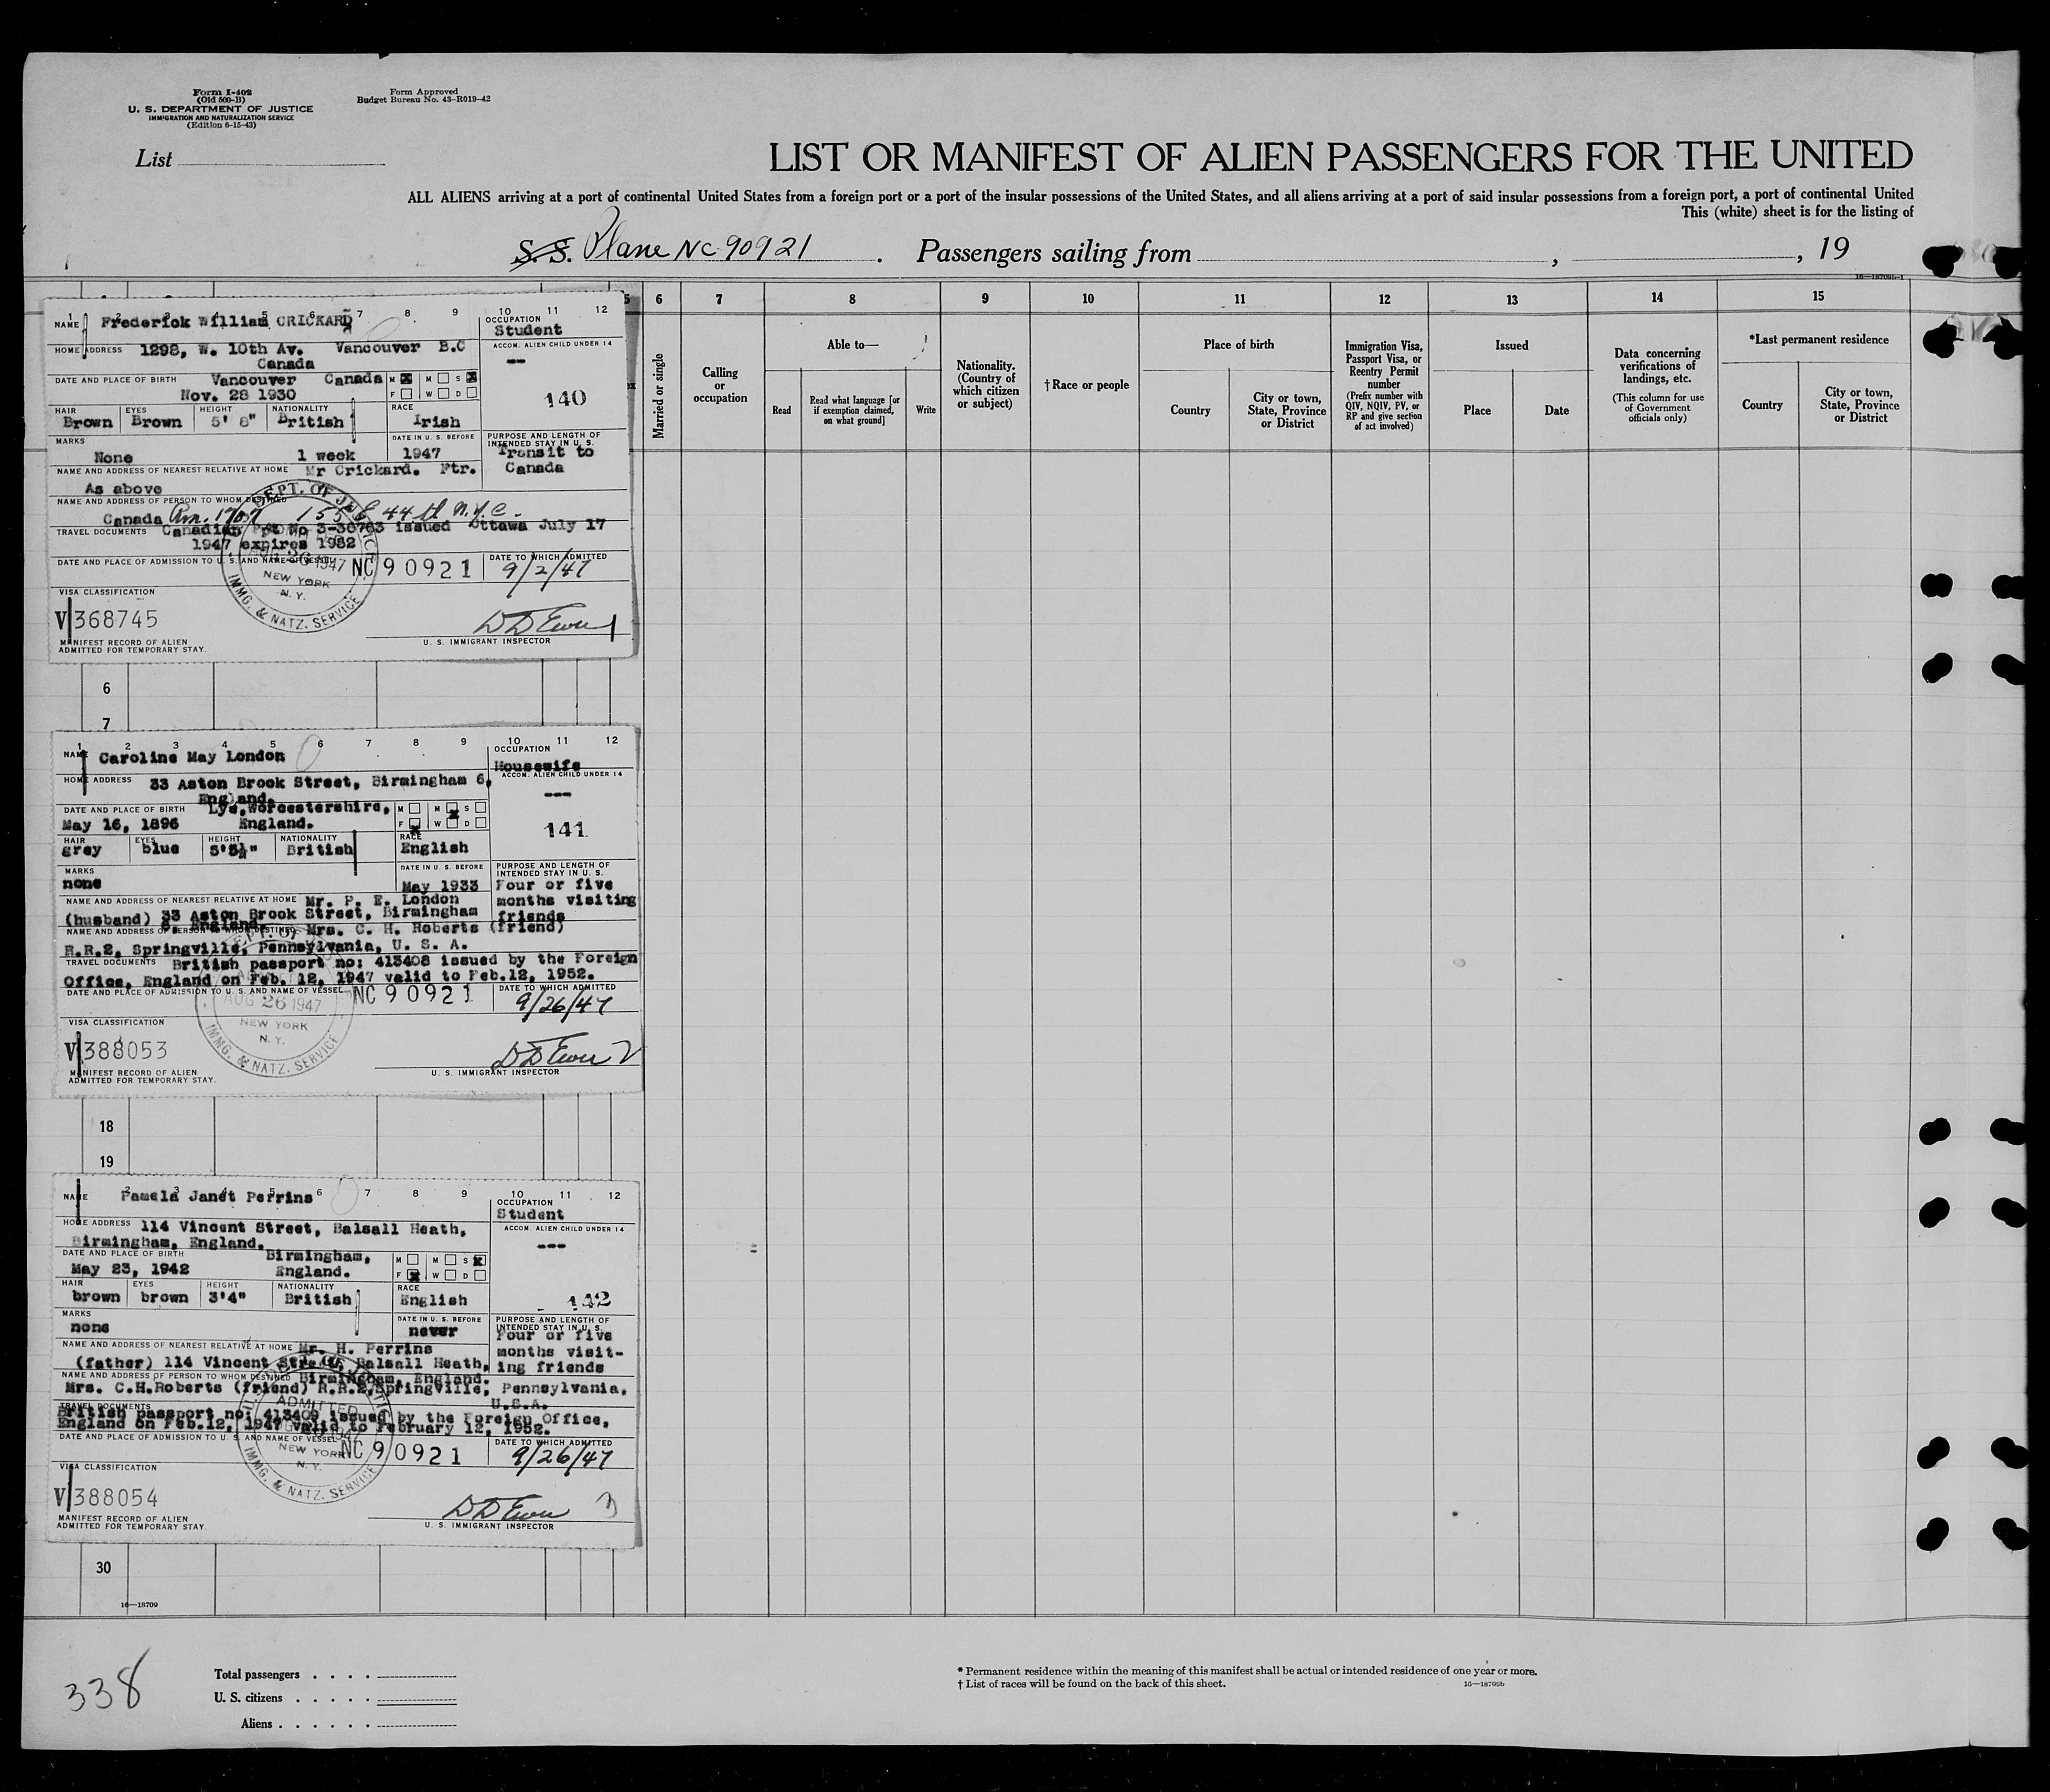 Form I-402
(Old 500-B)
U. S. DEPARTMENT OF JUSTICE
IMMIGRATION AND NATURALIZATION SERVICE
(Edition 6-15-43)
Form Approved
Budget Bureau No. 43-R019-42
List
LIST OR MANIFEST OF ALIEN PASSENGERS FOR THE UNITED
ALL ALIENS arriving at a port of continental United States from a foreign port or a port of the insular possessions of the United States, and all aliens arriving at a port of said insular possessions from a foreign port, a port of continental United
This (white) sheet is for the listing of
S. S. Plane NC 90921 . Passengers sailing from , , 19
16—18709b-1
5 6 7 8 9 10 11 12 13 14 15
Married or single
Calling
or
occupation
Able to—
Read
Read what language [or
if exemption claimed,
on what ground]
Write
Nationality.
(Country of
which citizen
or subject)
† Race or people
Place of birth
Country
City or town,
State, Province
or District
Immigration Visa,
Passport Visa, or
Reentry Permit
number
(Prefix number with
QIV, NQIV, PV, or
RP and give section
of act involved)
Issued
Place
Date
Data concerning
verifications of
landings, etc.
(This column for use
of Government
officials only)
*Last permanent residence
Country
City or town,
State, Province
or District
1 2 3 4 5 6 7 8 9 10 11 12
NAME Frederick William CRICKARD
OCCUPATION
Student
HOME ADDRESS 1298, W. 10th Av. Vancouver B.C
Canada
ACCOM. ALIEN CHILD UNDER 14
--
DATE AND PLACE OF BIRTH Vancouver Canada
Nov. 28 1930
M M S
F W D
140
HAIR EYES HEIGHT NATIONALITY RACE
Brown Brown 5' 8" British Irish
MARKS
None 1 week
DATE IN U. S. BEFORE
1947
PURPOSE AND LENGTH OF
INTENDED STAY IN U. S.
Transit to
Canada
NAME AND ADDRESS OF NEAREST RELATIVE AT HOME Mr Crickard. Ftr.
As above
NAME AND ADDRESS OF PERSON TO WHOM DESTINED
Canada Rm. 1707 155 E 44th N.Y.C.
TRAVEL DOCUMENTS Canadian Ppt No 3-36763 issued Ottawa July 17
1947 expires 1952
DATE AND PLACE OF ADMISSION TO U. S. AND NAME OF VESSEL NC 90921
DATE TO WHICH ADMITTED
9/2/47
DEPT. OF
1947
NEW YORK
N. Y.
IMMG. & NATZ. SERVICE
VISA CLASSIFICATION
V 368745
MANIFEST RECORD OF ALIEN
ADMITTED FOR TEMPORARY STAY.
U. S. IMMIGRANT INSPECTOR
1
6
7
1 2 3 4 5 6 7 8 9 10 11 12
NAME Caroline May London
OCCUPATION
Housewife
HOME ADDRESS 33 Aston Brook Street, Birmingham 6,
England.
ACCOM. ALIEN CHILD UNDER 14
---
DATE AND PLACE OF BIRTH Lye, Worcestershire,
May 16, 1896 England.
M M S
F W D
141
HAIR EYES HEIGHT NATIONALITY RACE
grey blue 5'5½" British English
MARKS
none
DATE IN U. S. BEFORE
May 1933
PURPOSE AND LENGTH OF
INTENDED STAY IN U. S.
Four or five
months visiting
friends
NAME AND ADDRESS OF NEAREST RELATIVE AT HOME Mr. P. E. London
(husband) 33 Aston Brook Street, Birmingham
6, England.
NAME AND ADDRESS OF PERSON TO WHOM DESTINED Mrs. C. H. Roberts (friend)
R.R.2, Springville, Pennsylvania, U. S. A.
TRAVEL DOCUMENTS British passport no: 413408 issued by the Foreign
Office, England on Feb. 12, 1947 valid to Feb.12, 1952.
DATE AND PLACE OF ADMISSION TO U. S. AND NAME OF VESSEL NC 90921
DATE TO WHICH ADMITTED
9/26/47
AUG 26 1947
NEW YORK
N. Y.
IMMG. & NATZ. SERVICE
VISA CLASSIFICATION
V 388053
MANIFEST RECORD OF ALIEN
ADMITTED FOR TEMPORARY STAY.
U. S. IMMIGRANT INSPECTOR
2
18
19
2 3 4 5 6 7 8 9 10 11 12
NAME Pamela Janet Perrins
OCCUPATION
Student
HOME ADDRESS 114 Vincent Street, Balsall Heath,
Birmingham, England.
ACCOM. ALIEN CHILD UNDER 14
---
DATE AND PLACE OF BIRTH Birmingham,
May 23, 1942 England.
M M S
F W D
142
HAIR EYES HEIGHT NATIONALITY RACE
brown brown 3'4" British English
MARKS
none
DATE IN U. S. BEFORE
never
PURPOSE AND LENGTH OF
INTENDED STAY IN U. S.
Four or five
months visit-
ing friends
NAME AND ADDRESS OF NEAREST RELATIVE AT HOME Mr. H. Perrins
(father) 114 Vincent Street, Balsall Heath,
Birmingham, England.
NAME AND ADDRESS OF PERSON TO WHOM DESTINED
Mrs. C.H.Roberts (friend) R.R.2,Springville, Pennsylvania,
U.S.A.
TRAVEL DOCUMENTS
British passport no: 413409 issued by the Foreign Office,
England on Feb.12, 1947 valid to February 12, 1952.
DATE AND PLACE OF ADMISSION TO U. S. AND NAME OF VESSEL NC 90921
DATE TO WHICH ADMITTED
9/26/47
ADMITTED
NEW YORK
N. Y.
IMMG. & NATZ. SERVICE
VISA CLASSIFICATION
V 388054
MANIFEST RECORD OF ALIEN
ADMITTED FOR TEMPORARY STAY.
U. S. IMMIGRANT INSPECTOR
3
30
16—18709
338
Total passengers
U. S. citizens
Aliens
* Permanent residence within the meaning of this manifest shall be actual or intended residence of one year or more.
† List of races will be found on the back of this sheet.
16—18709b